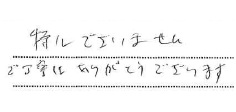 特にございません
ご丁寧にありがとうございます